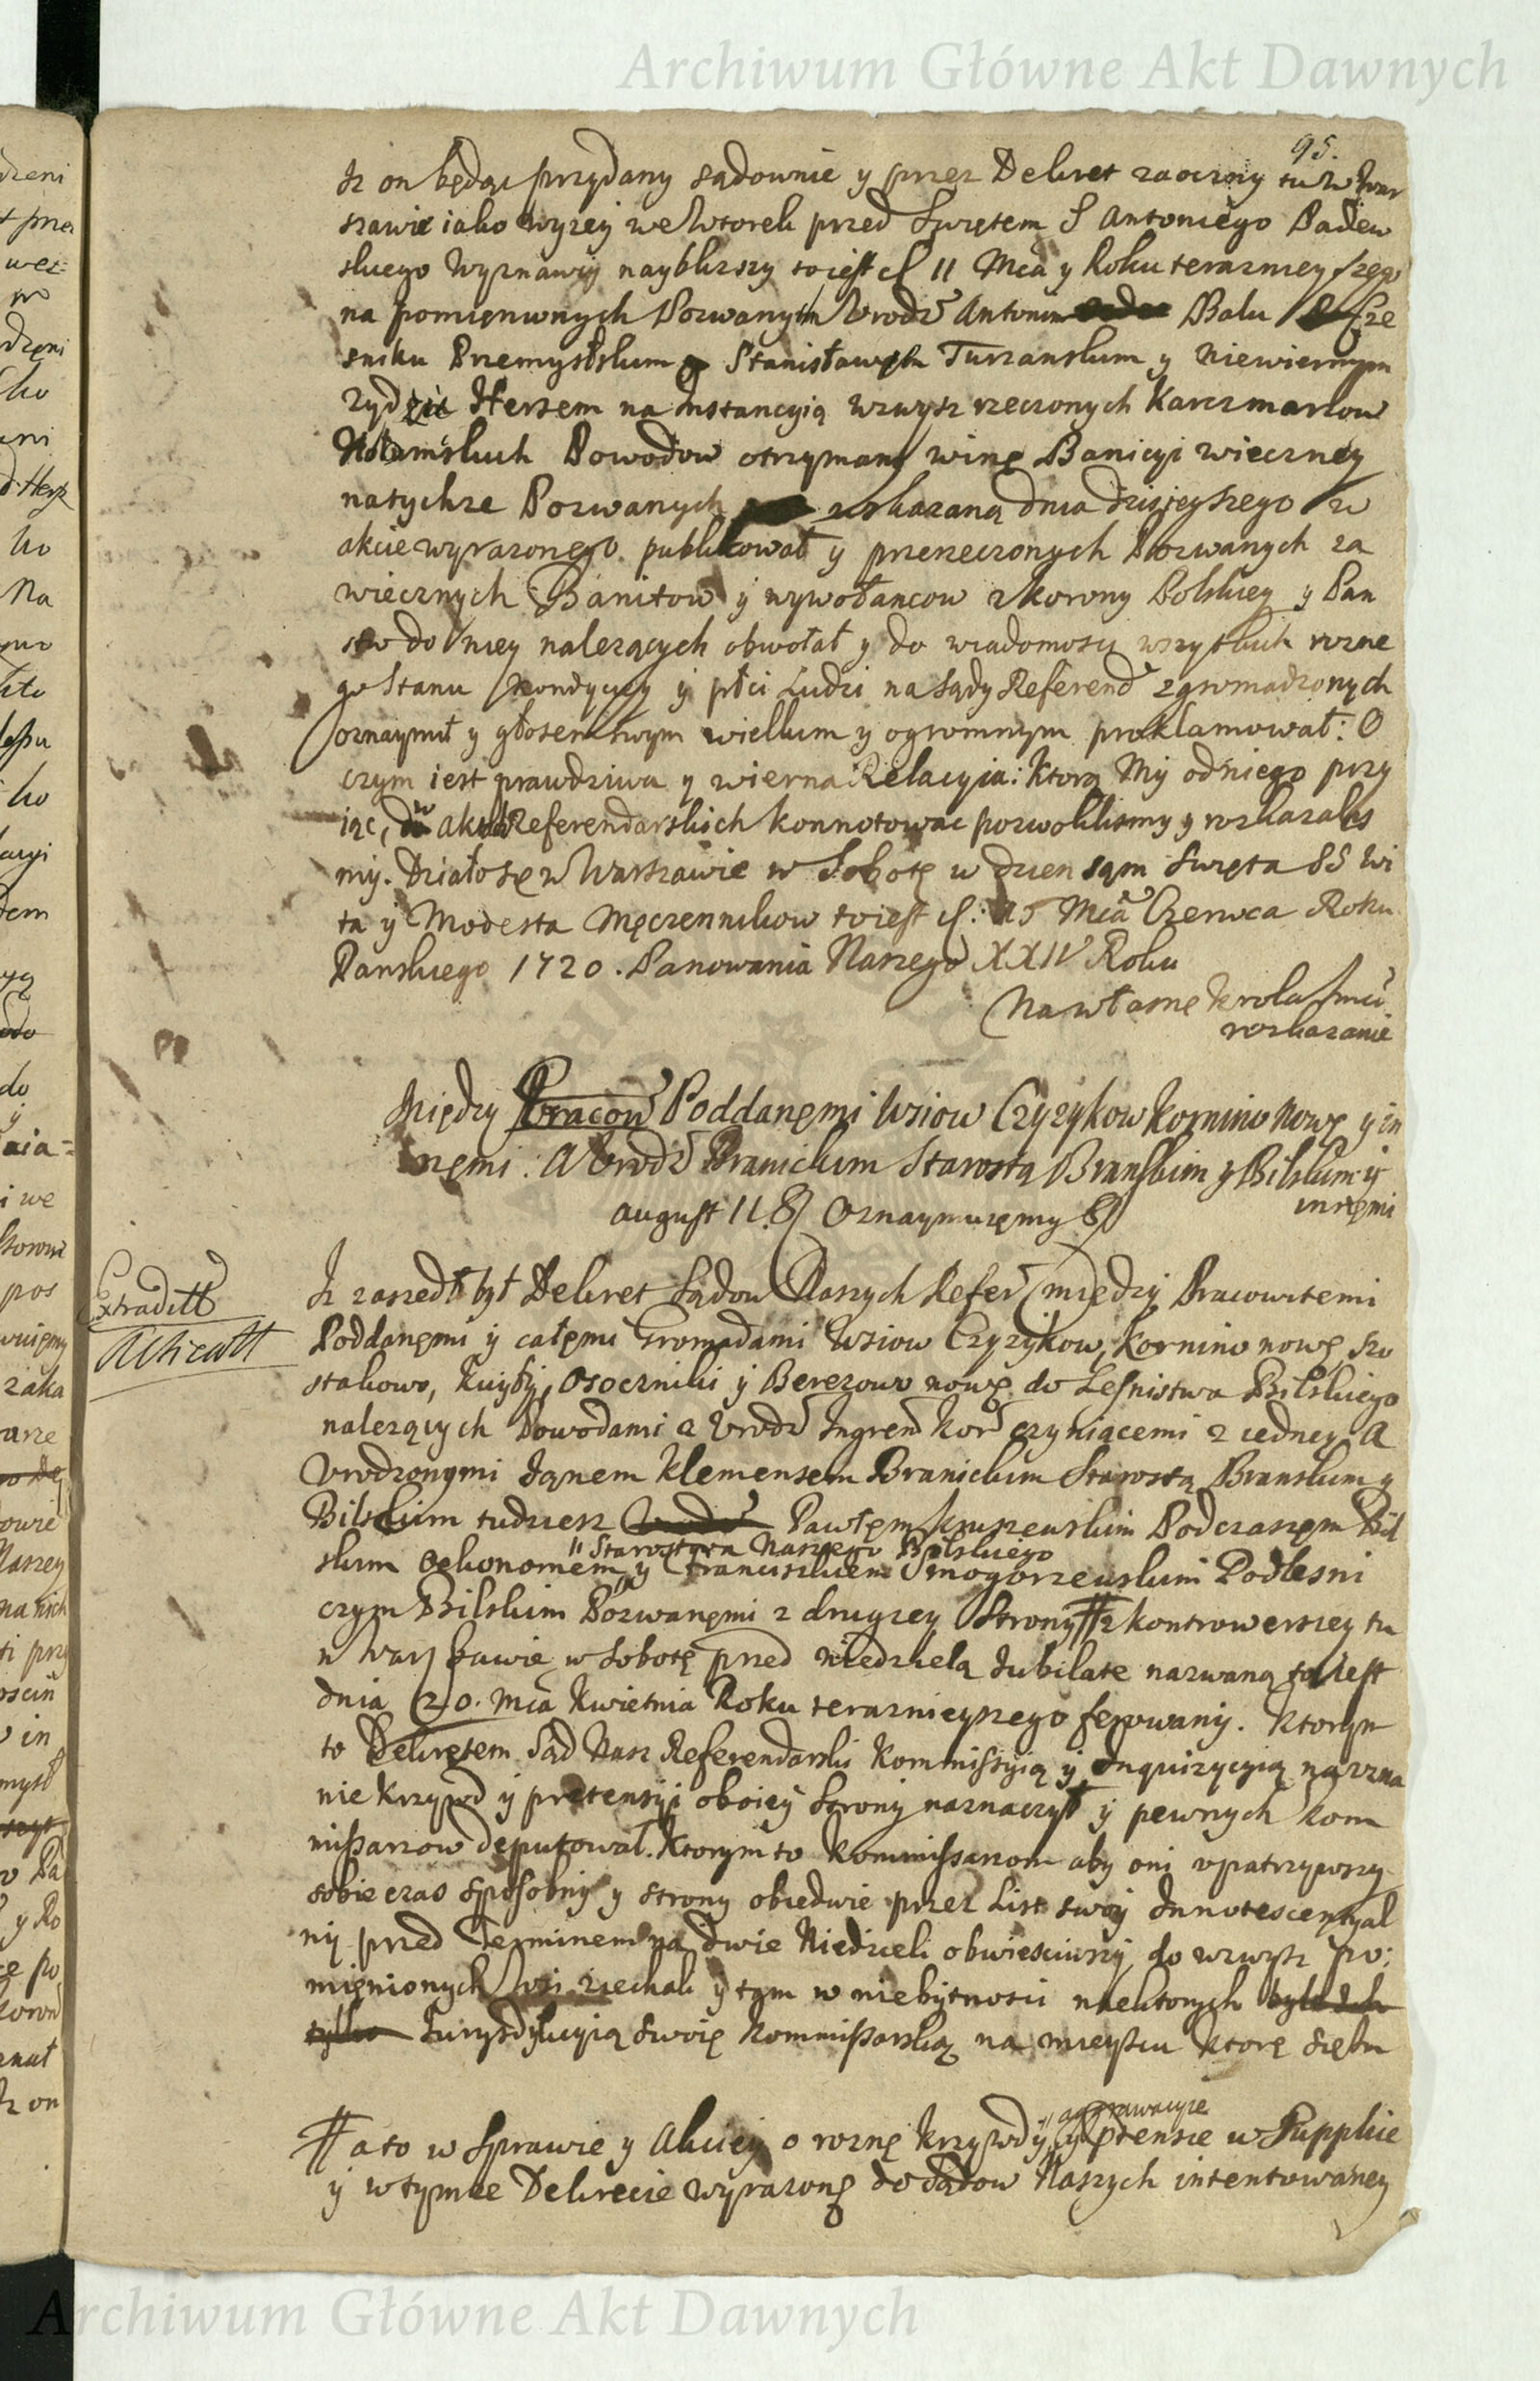 Archiwum Główne Akt Dawnych
95.
Iz on będąc przydany sądownie y przez Dekret zaoczny tu w War
szawie iako wyzey we Wtorek przed Swiętem S Antoniego Padew
skiego Wyznawcy naybliższy toiest d 11 Mca y Roku teraznieyszego
na pomięnionych Pozwanych Urodz Antonim Balu Cze
sniku Przemysłskum y Stanisławem Turzanskum y Niewiernym
Zydzie Herszem na Instancyią wzwysz rzeczonych Karczmarzow
Powodow otrzymaną winę Banicyi wieczney
natychze Pozwanych wskazaną dnia dzisieyszego w
akcie wyrazonego publikował y przerzeczonych Pozwanych za
wiecznych Banitow y wywołancow z Korony Polskiey y Pan
stw do niey nalezących obwołał y do wiadomosci wszytkich rozne
go Stanu kondycyey y płci Ludzi na Sądy Referend zgromadzonych
oznaymił y głosem swym wielkum y ogromnym proklamował: O
czym iest prawdziwa y wierna Relacyia: Ktorą My od niego przy
iąc, w aktach Referendarskich konnotowac pozwolilismy y rozkazalis
my. Działo sę w Warszawie w Sobotę w dzien sąm Swięta SS Wi
ta y Modesta Męczennikow toiest d: 15 Mca Czerwca Roku
Panskiego 1720. Panowania Naszego XXIV Roku
Na własne Krola Jmci
rozkazanie
Między Pracow Poddanęmi Wsiow Czyzykow Kornino Nowę y in
nęmi: A Urodz Branickim Starostą Branskim y Bilskim y
inszęmi
August II. &c Oznaymuięmy &c
Extraditt
Iz zaszedł był Dekret Sądow Naszych Refer między Pracowitemi
Poddanęmi y całęmi Gromadami Wsiow Czyzykow, Kornino nowę, Szo
stakowo, Osoczniki y Berezowo nowę do Lesnistwa Bilskiego
nalezących Powodami z Urodz Kor czyniącemi z iedney A
Urodzonymi Janem Klemensem Branickim Starostą Branskum y
Bilskim tudziesz Pawłęm Kruszewskim Podczaszęm Bil
" Starostwa Naszego Bilskiego
skum Oekonomem y Franciszkiem Mogorzewskim Podlesni
czym Bilskim Pozwanęmi z drugiey Strony # z kontrowersyey tu
w Warszawie w Sobotę przed Niedzielą Jubilate nazwaną toiest
dnia 20. Mca Kwietnia Roku teraznieyszego ferowany. Ktorym
to Dekretem Sąd Nasz Referendarski Kommissyią y Inquizycyią na
nie krzywd y pretensyi oboiey Strony naznaczył y pewnych kom
missarzow deputował. Ktorym to Kommissarzom aby oni upatrzywszy
sobie czas sposobny y strony obiedwie przez List swoy Innotescentyal
ny przed Terminem na dwie Niedzieli obwiesciwszy, do wzwysz po:
mięnionych Wsi ziechali y tam w niebytnosci niektorych
Iurysdykcyią swoię Kommissarską na mieyscu ktorę
" aggrawacyie
# a to w Sprawie y Akcyey o roznę krzywdy y ptensie w Supplice
y w tymze Dekrecie wyrazonę do Sądow Naszych intentowaney
Archiwum Główne Akt Dawnych